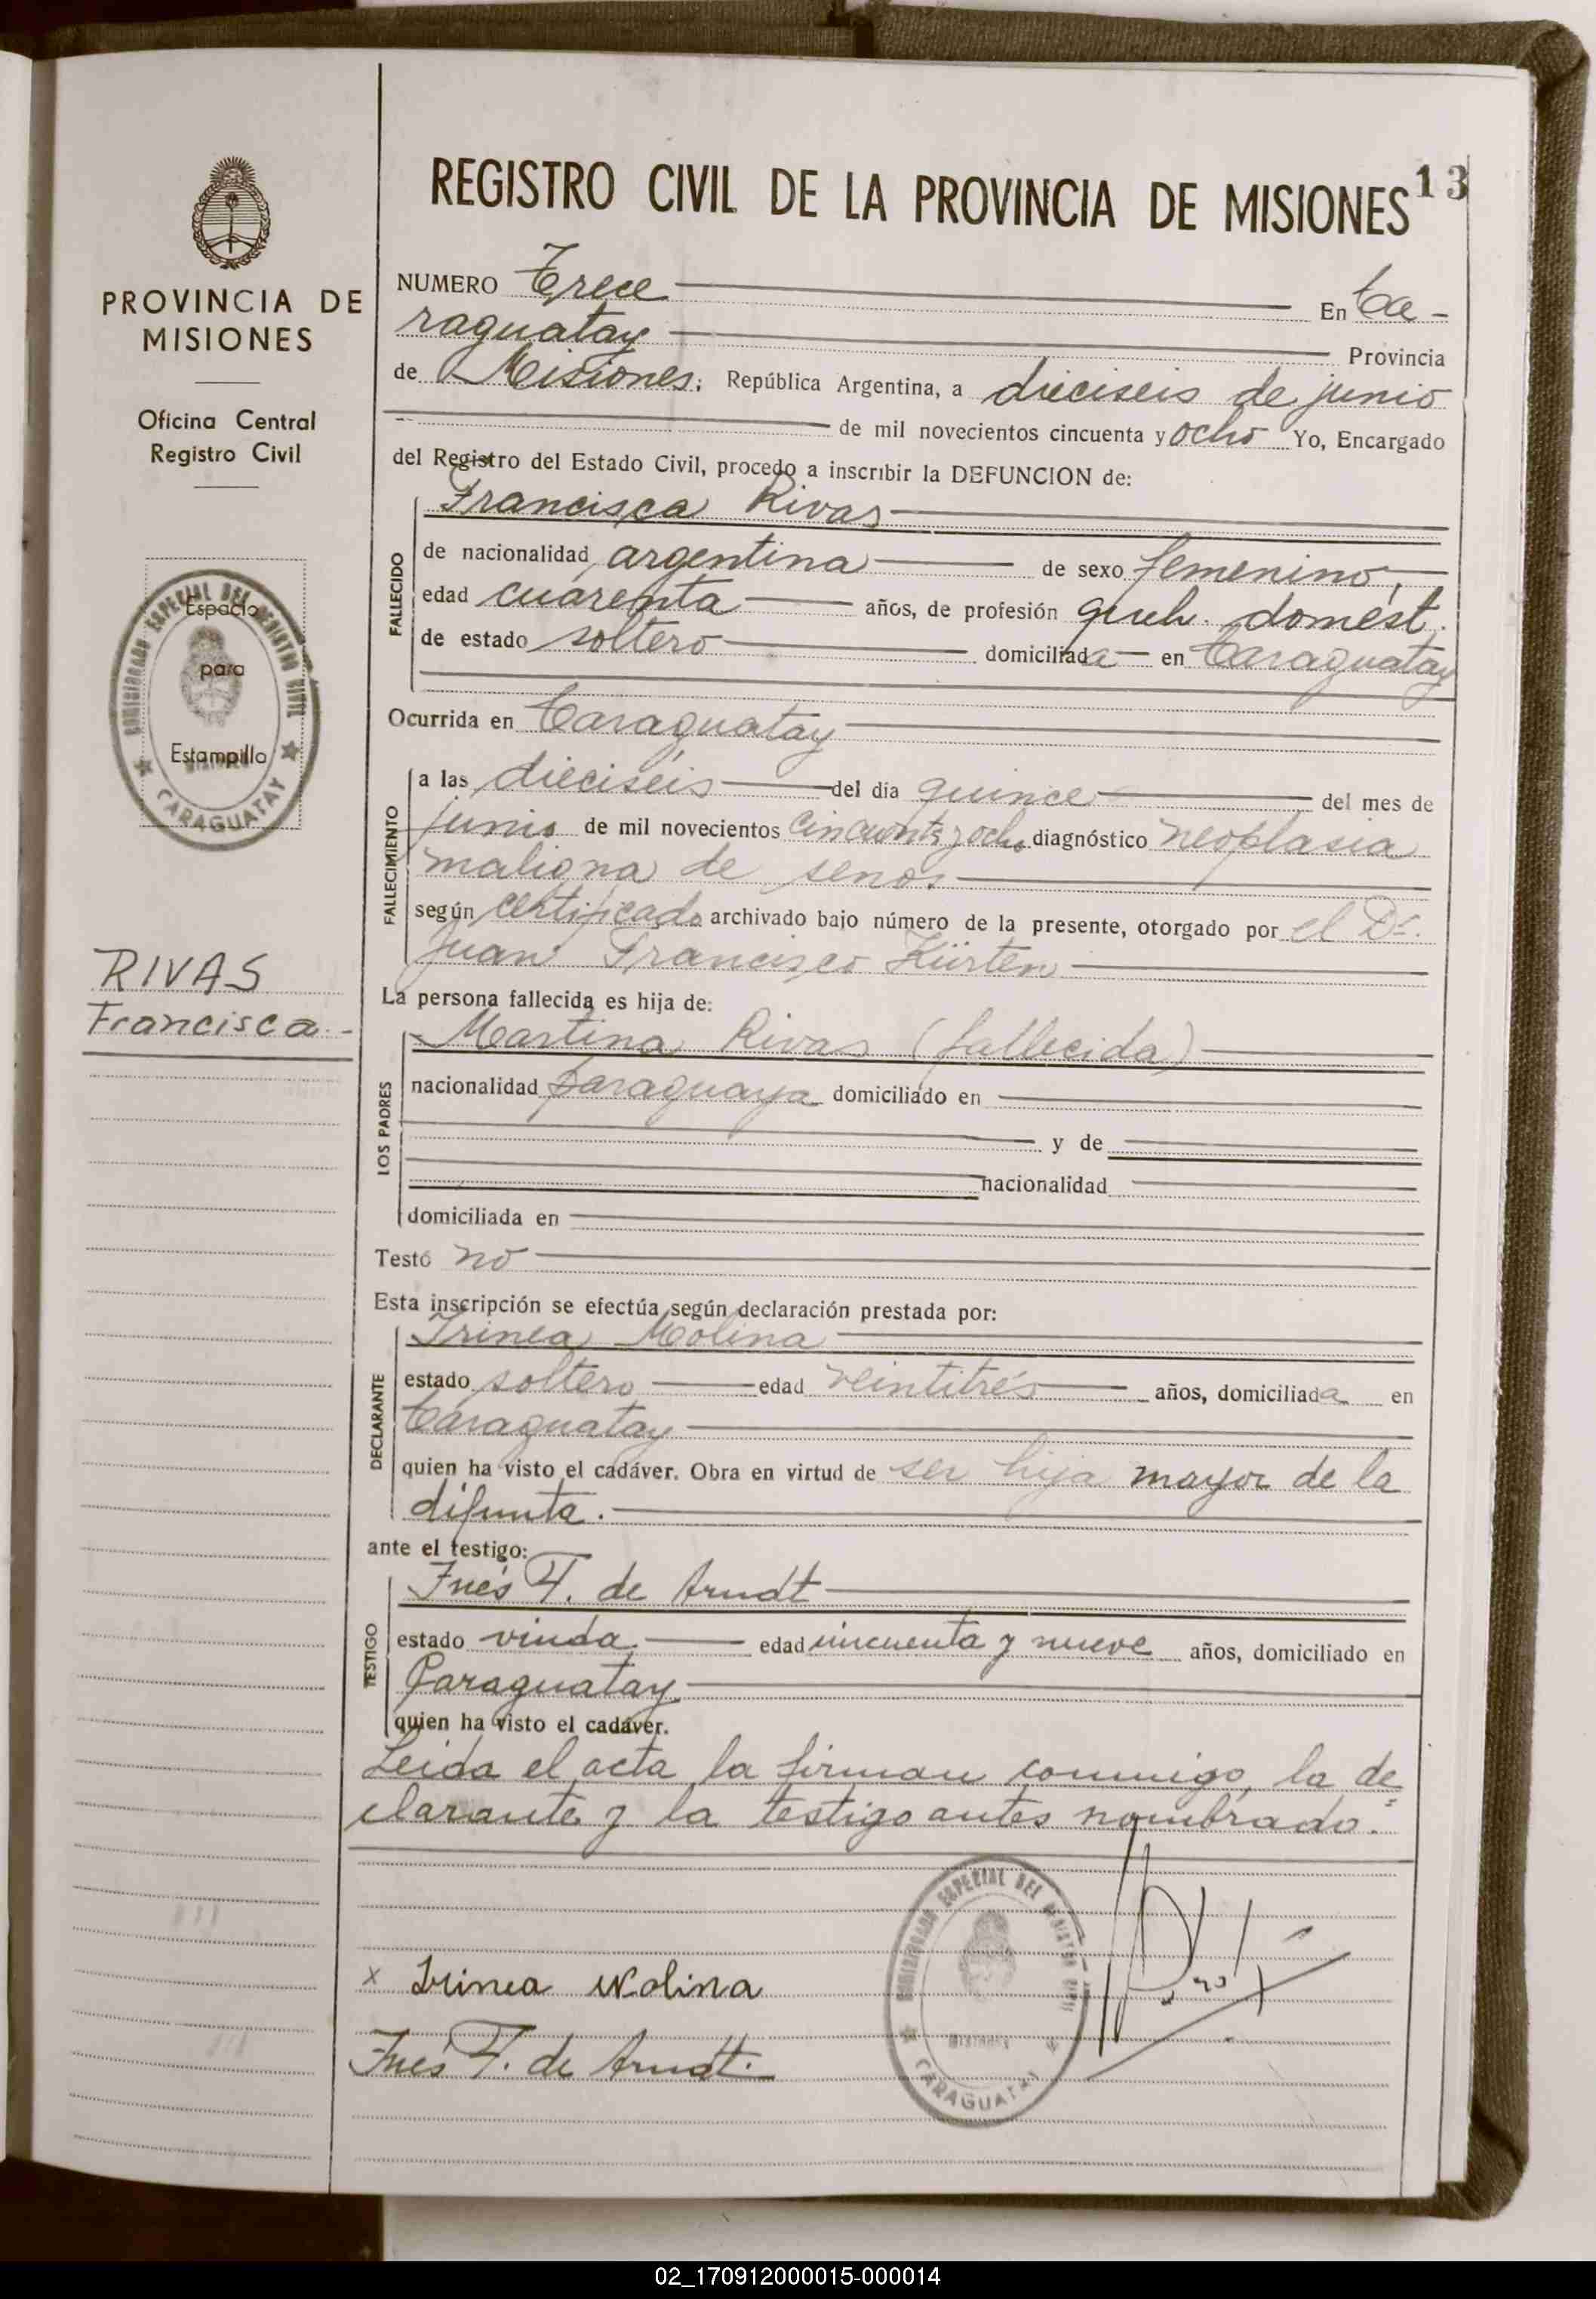 13
REGISTRO CIVIL DE LA PROVINCIA DE MISIONES
PROVINCIA DE
MISIONES
Oficina Central
Registro Civil
Espacio
para
Estampilla
COMISIONADO ESPECIAL DEL REGISTRO CIVIL
MISIONES
CARAGUATAY
RIVAS
Francisca.-
NUMERO Trece En Ca-
raguatay Provincia
de Misiones; República Argentina, a dieciseis de junio
de mil novecientos cincuenta y ocho Yo, Encargado
del Registro del Estado Civil, procedo a inscribir la DEFUNCION de:
Francisca Rivas
FALLECIDO
de nacionalidad argentina de sexo femenino,
edad cuarenta años, de profesión queh. domést.
de estado soltero domiciliada en Caraguatay
Ocurrida en Caraguatay
FALLECIMIENTO
a las dieciseis del día quince del mes de
junio de mil novecientos cincuenta y ocho diagnóstico neoplasia
maligna de senos.
según certificado archivado bajo número de la presente, otorgado por el Dr.
Juan Francisco Kürten
La persona fallecida es hija de:
LOS PADRES
Martina Rivas (fallecida)
nacionalidad paraguaya domiciliado en
y de
nacionalidad
domiciliada en
Testó no
Esta inscripción se efectúa según declaración prestada por:
DECLARANTE
Irinea Molina
estado soltero edad veintitrés años, domiciliada en
Caraguatay
quien ha visto el cadáver. Obra en virtud de ser hija mayor de la
difunta.
ante el testigo:
TESTIGO
Inés F. de Arndt
estado viuda edad cincuenta y nueve años, domiciliado en
Caraguatay
quien ha visto el cadáver.
Leida el acta la firman conmigo, la de=
clarante y la testigo antes nombrado.
COMISIONADO ESPECIAL DEL REGISTRO CIVIL
MISIONES
CARAGUATAY
x Irinea Molina
Inés F. de Arndt.
02_170912000015-000014